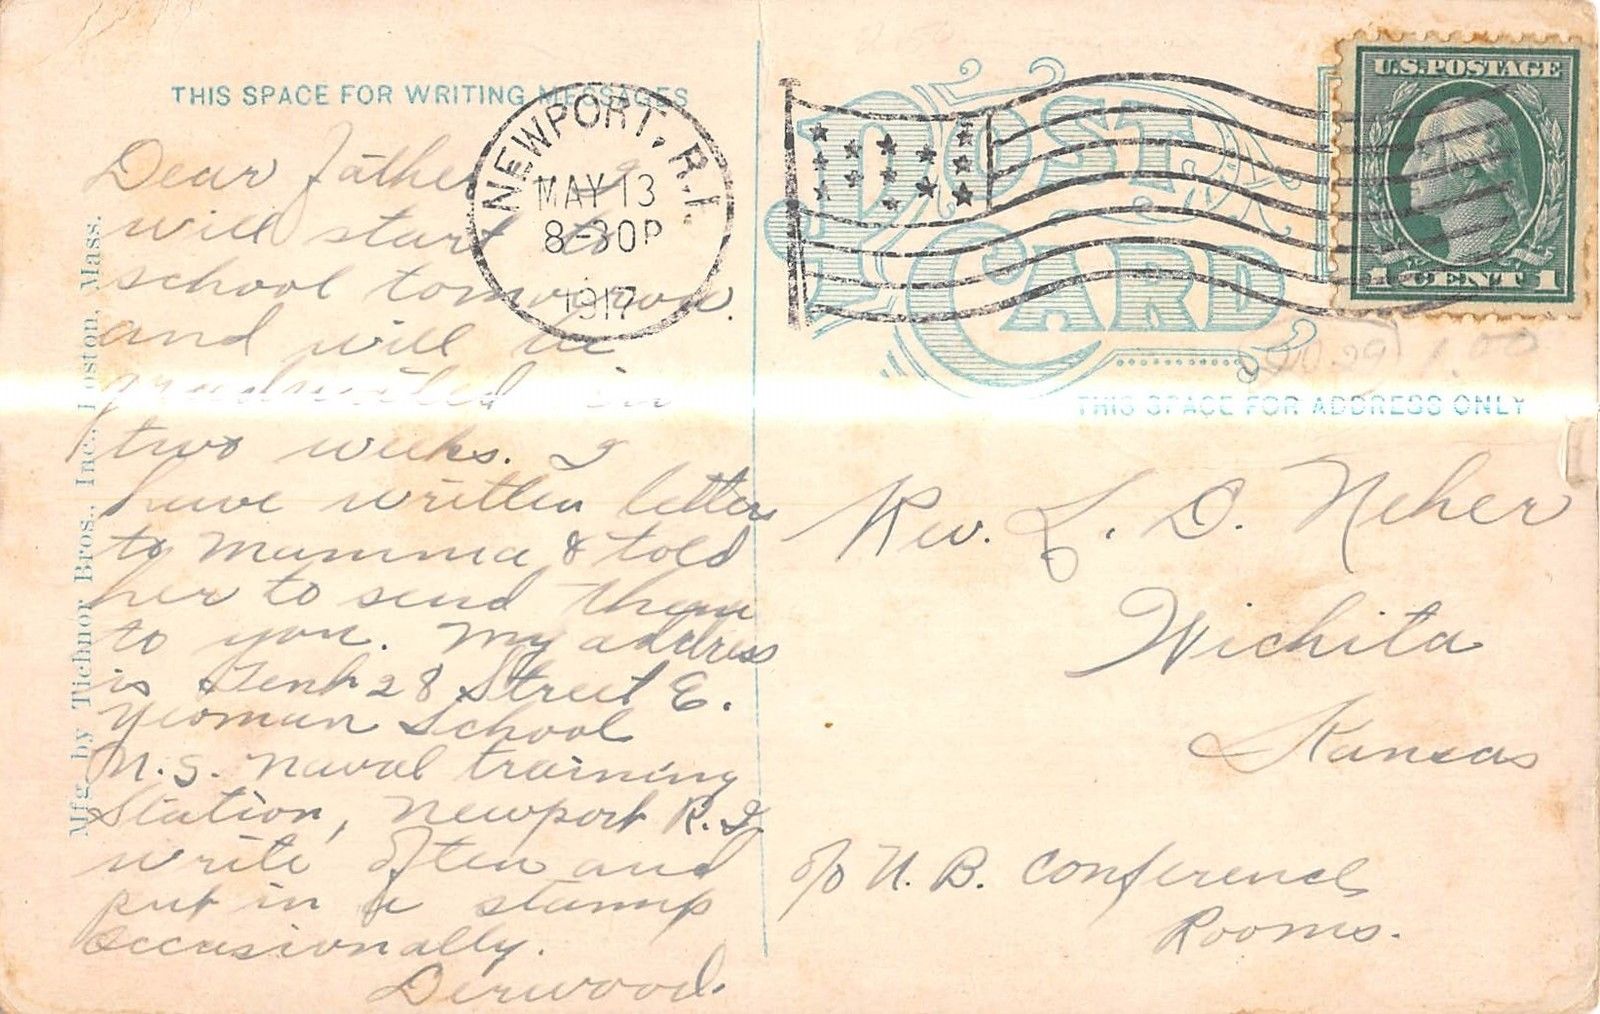 THIS SPACE FOR WRITING MESSAGES
Dear Father I
will start to
school tomorrow.
and will be
graduated in
two weeks. I
have written letters
to Mamma & told
her to send them
to you. My address
is Tent 28 Street E.
Yeoman School
U.S. Naval training
Station, Newport R.I.
write often and
put in a stamp
occasionally.
Derwood.
Mfg. by Tichnor Bros., Inc., Boston, Mass.
NEWPORT, R.I.
MAY 13
8-30P
1917
POST
CARD
U.S. POSTAGE
1 CENT 1
1.00
THIS SPACE FOR ADDRESS ONLY
Rev. L. O. Neher
Wichita
Kansas
c/o U. B. Conference
Rooms.